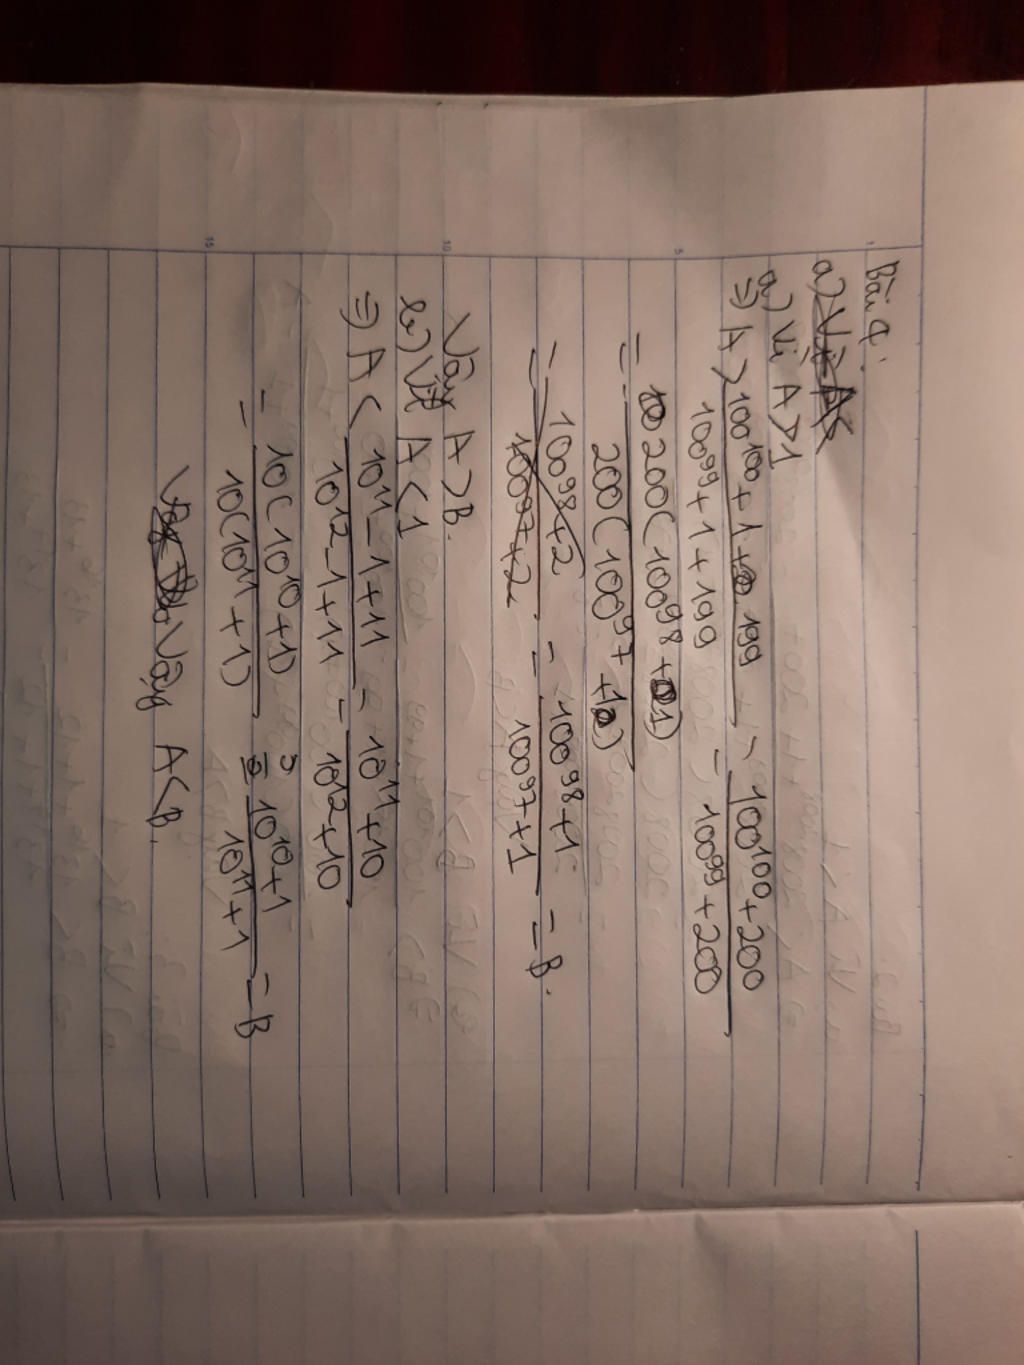 Bài 4:
a) Vì A<
a) Vì A > 1
⇒ A > (100^100 + 1 + 199)/(100^99 + 1 + 199) = (100^100 + 200)/(100^99 + 200)
= 200(100^98 + 1)/200(100^97 + 1)
= (100^98 + 2)/(100^97 + 2) = (100^98 + 1)/(100^97 + 1) = B.
Vậy A > B.
b) Vì A < 1
⇒ A < (10^11 - 1 + 11)/(10^12 - 1 + 11) = (10^11 + 10)/(10^12 + 10)
= 10(10^10 + 1)/10(10^11 + 1) = (10^10 + 1)/(10^11 + 1) = B
Vậy A < B.